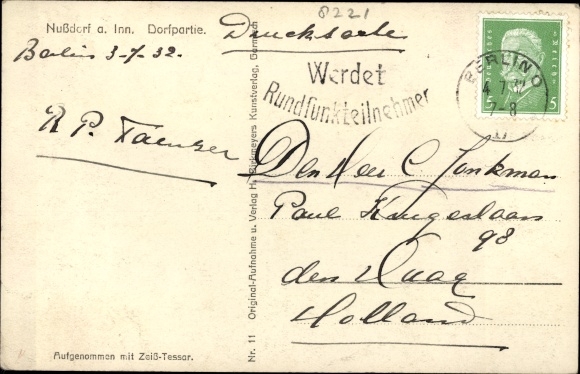 8221
Nußdorf a. Inn. Dorfpartie.
Drucksache
Berlin 3-7-32.
Werdet
Rundfunkteilnehmer
Deutsches Reich
5 5
BERLIN O
4.7.32
7-8
R P.
Den Heer C. Jonkman
Paul Krugerlaan
98
den Haag
Holland
Aufgenommen mit Zeiß-Tessar.
Nr. 11 Original-Aufnahme u. Verlag H. Birkmeyers Kunstverlag, Garmisch